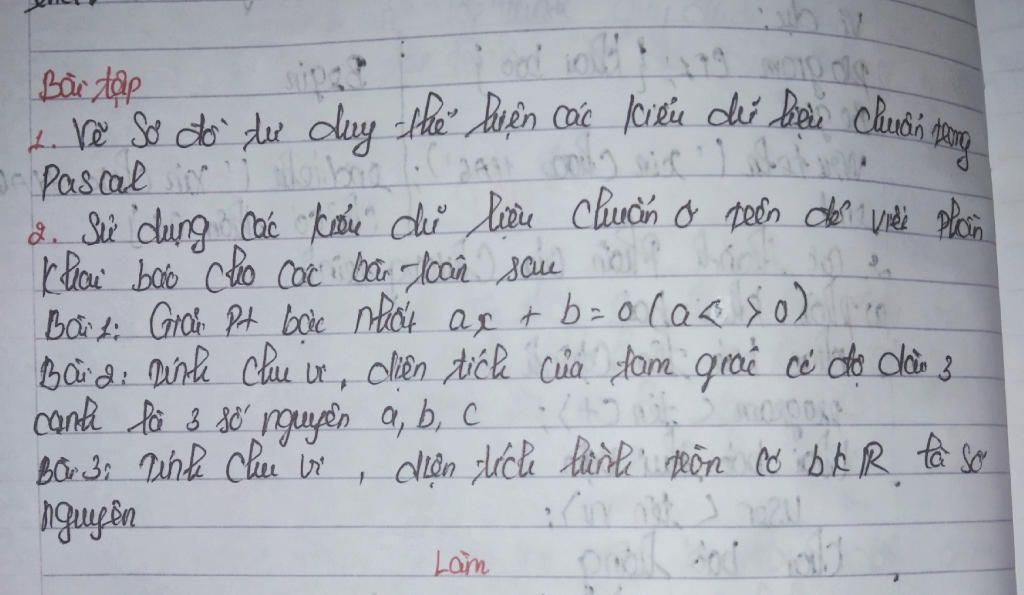 Bài tập
1. Vẽ sơ đồ tư duy thể hiện các kiểu dữ liệu chuẩn trong
Pascal
2. Sử dụng các kiểu dữ liệu chuẩn ở trên để viết phần
khai báo cho các bài toán sau
Bài 1: Giải Pt bậc nhất ax + b = 0 (a < > 0)
Bài 2: Tính chu vi, diện tích của tam giác có độ dài 3
cạnh là 3 số nguyên a, b, c
Bài 3: Tính chu vi, diện tích hình tròn có bk R là số
nguyên
Làm